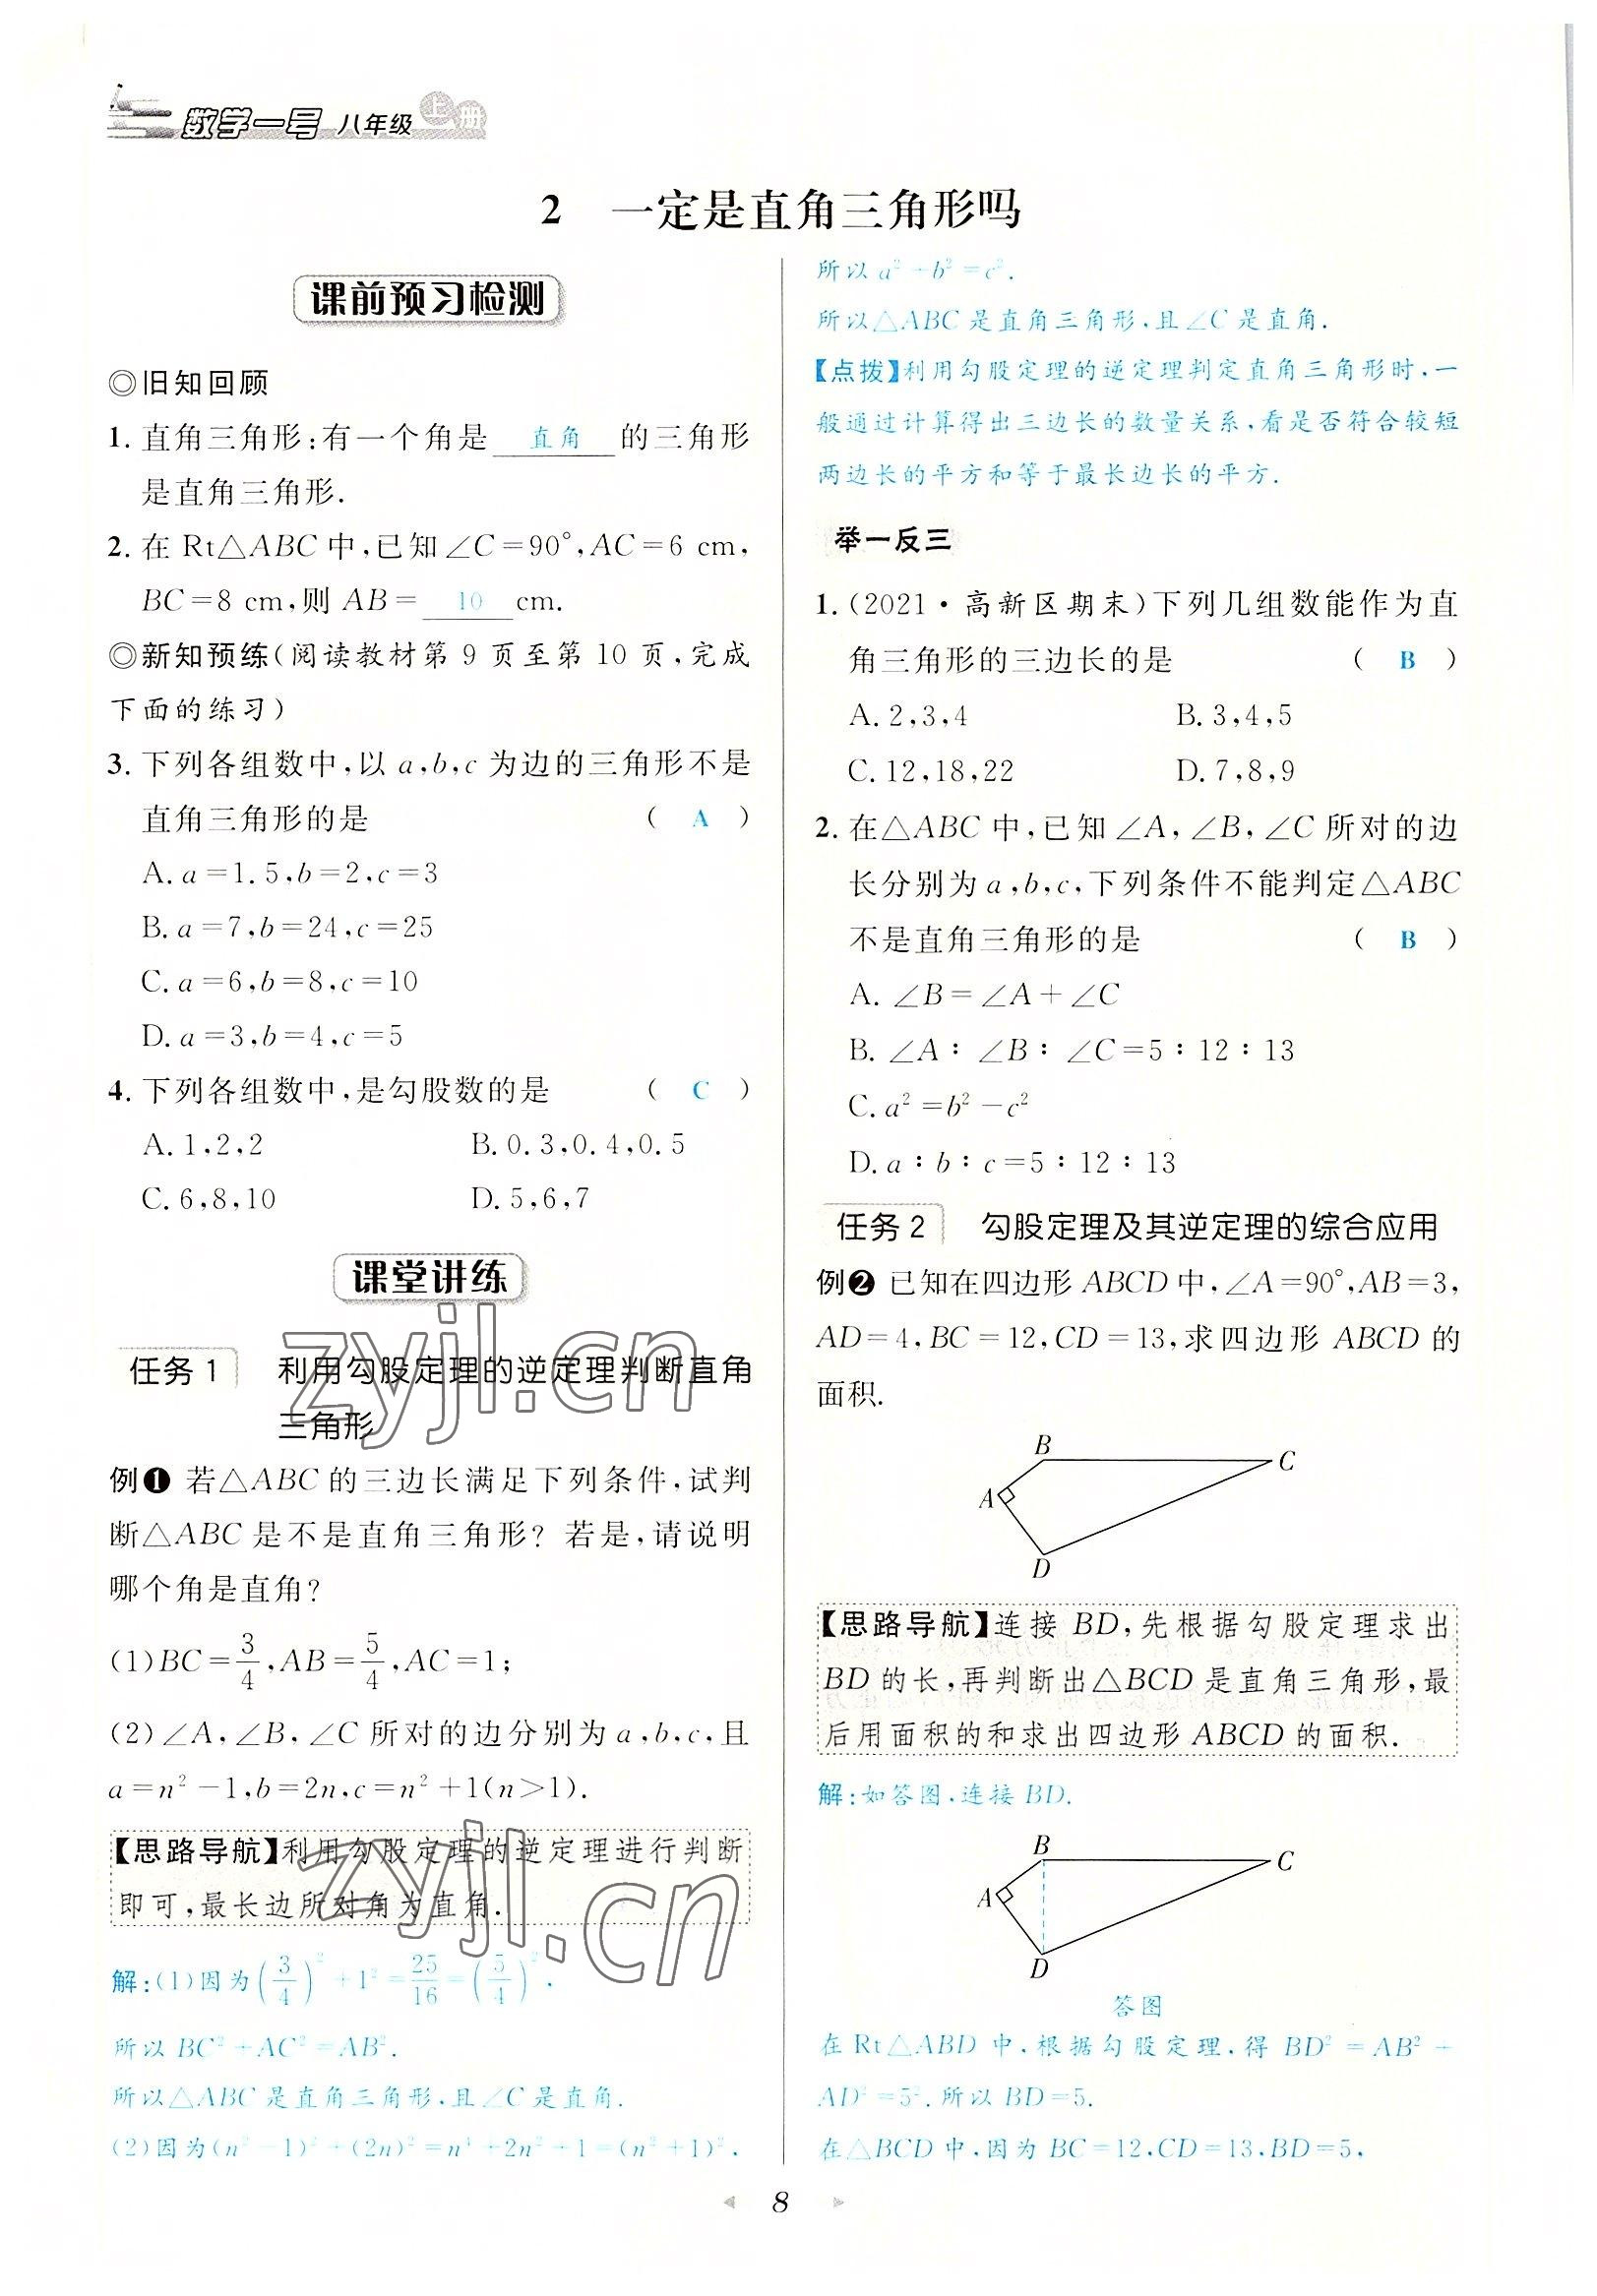 数学一号 八年级 上册
2 一定是直角三角形吗
课前预习检测
◎旧知回顾
1. 直角三角形:有一个角是 直角 的三角形
是直角三角形.
2. 在 Rt△ABC 中,已知∠C=90°,AC=6 cm,
BC=8 cm,则 AB= 10 cm.
◎新知预练(阅读教材第 9 页至第 10 页,完成
下面的练习)
3. 下列各组数中,以 a,b,c 为边的三角形不是
直角三角形的是 ( A )
A. a=1.5,b=2,c=3
B. a=7,b=24,c=25
C. a=6,b=8,c=10
D. a=3,b=4,c=5
4. 下列各组数中,是勾股数的是 ( C )
A. 1,2,2 B. 0.3,0.4,0.5
C. 6,8,10 D. 5,6,7
课堂讲练
任务 1 利用勾股定理的逆定理判断直角
三角形
例❶ 若△ABC 的三边长满足下列条件,试判
断△ABC 是不是直角三角形? 若是,请说明
哪个角是直角?
(1)BC=3/4,AB=5/4,AC=1;
(2)∠A,∠B,∠C 所对的边分别为 a,b,c,且
a=n²-1,b=2n,c=n²+1(n>1).
【思路导航】利用勾股定理的逆定理进行判断
即可,最长边所对角为直角.
解:(1)因为(3/4)²+1²=25/16=(5/4)².
所以 BC²+AC²=AB².
所以△ABC 是直角三角形,且∠C 是直角.
(2)因为(n²-1)²+(2n)²=n⁴+2n²+1=(n²+1)².
所以 a²+b²=c².
所以△ABC 是直角三角形,且∠C 是直角.
【点拨】利用勾股定理的逆定理判定直角三角形时,一
般通过计算得出三边长的数量关系,看是否符合较短
两边长的平方和等于最长边长的平方.
举一反三
1. (2021·高新区期末)下列几组数能作为直
角三角形的三边长的是 ( B )
A. 2,3,4 B. 3,4,5
C. 12,18,22 D. 7,8,9
2. 在△ABC 中,已知∠A,∠B,∠C 所对的边
长分别为 a,b,c,下列条件不能判定△ABC
不是直角三角形的是 ( B )
A. ∠B=∠A+∠C
B. ∠A∶∠B∶∠C=5∶12∶13
C. a²=b²-c²
D. a∶b∶c=5∶12∶13
任务 2 勾股定理及其逆定理的综合应用
例❷ 已知在四边形 ABCD 中,∠A=90°,AB=3,
AD=4,BC=12,CD=13,求四边形 ABCD 的
面积.
B
C
A
D
【思路导航】连接 BD,先根据勾股定理求出
BD 的长,再判断出△BCD 是直角三角形,最
后用面积的和求出四边形 ABCD 的面积.
解:如答图,连接 BD.
B
C
A
D
答图
在 Rt△ABD 中,根据勾股定理,得 BD²=AB²+
AD²=5².所以 BD=5.
在△BCD 中,因为 BC=12,CD=13,BD=5,
8
zyjl.cn
zyjl.cn